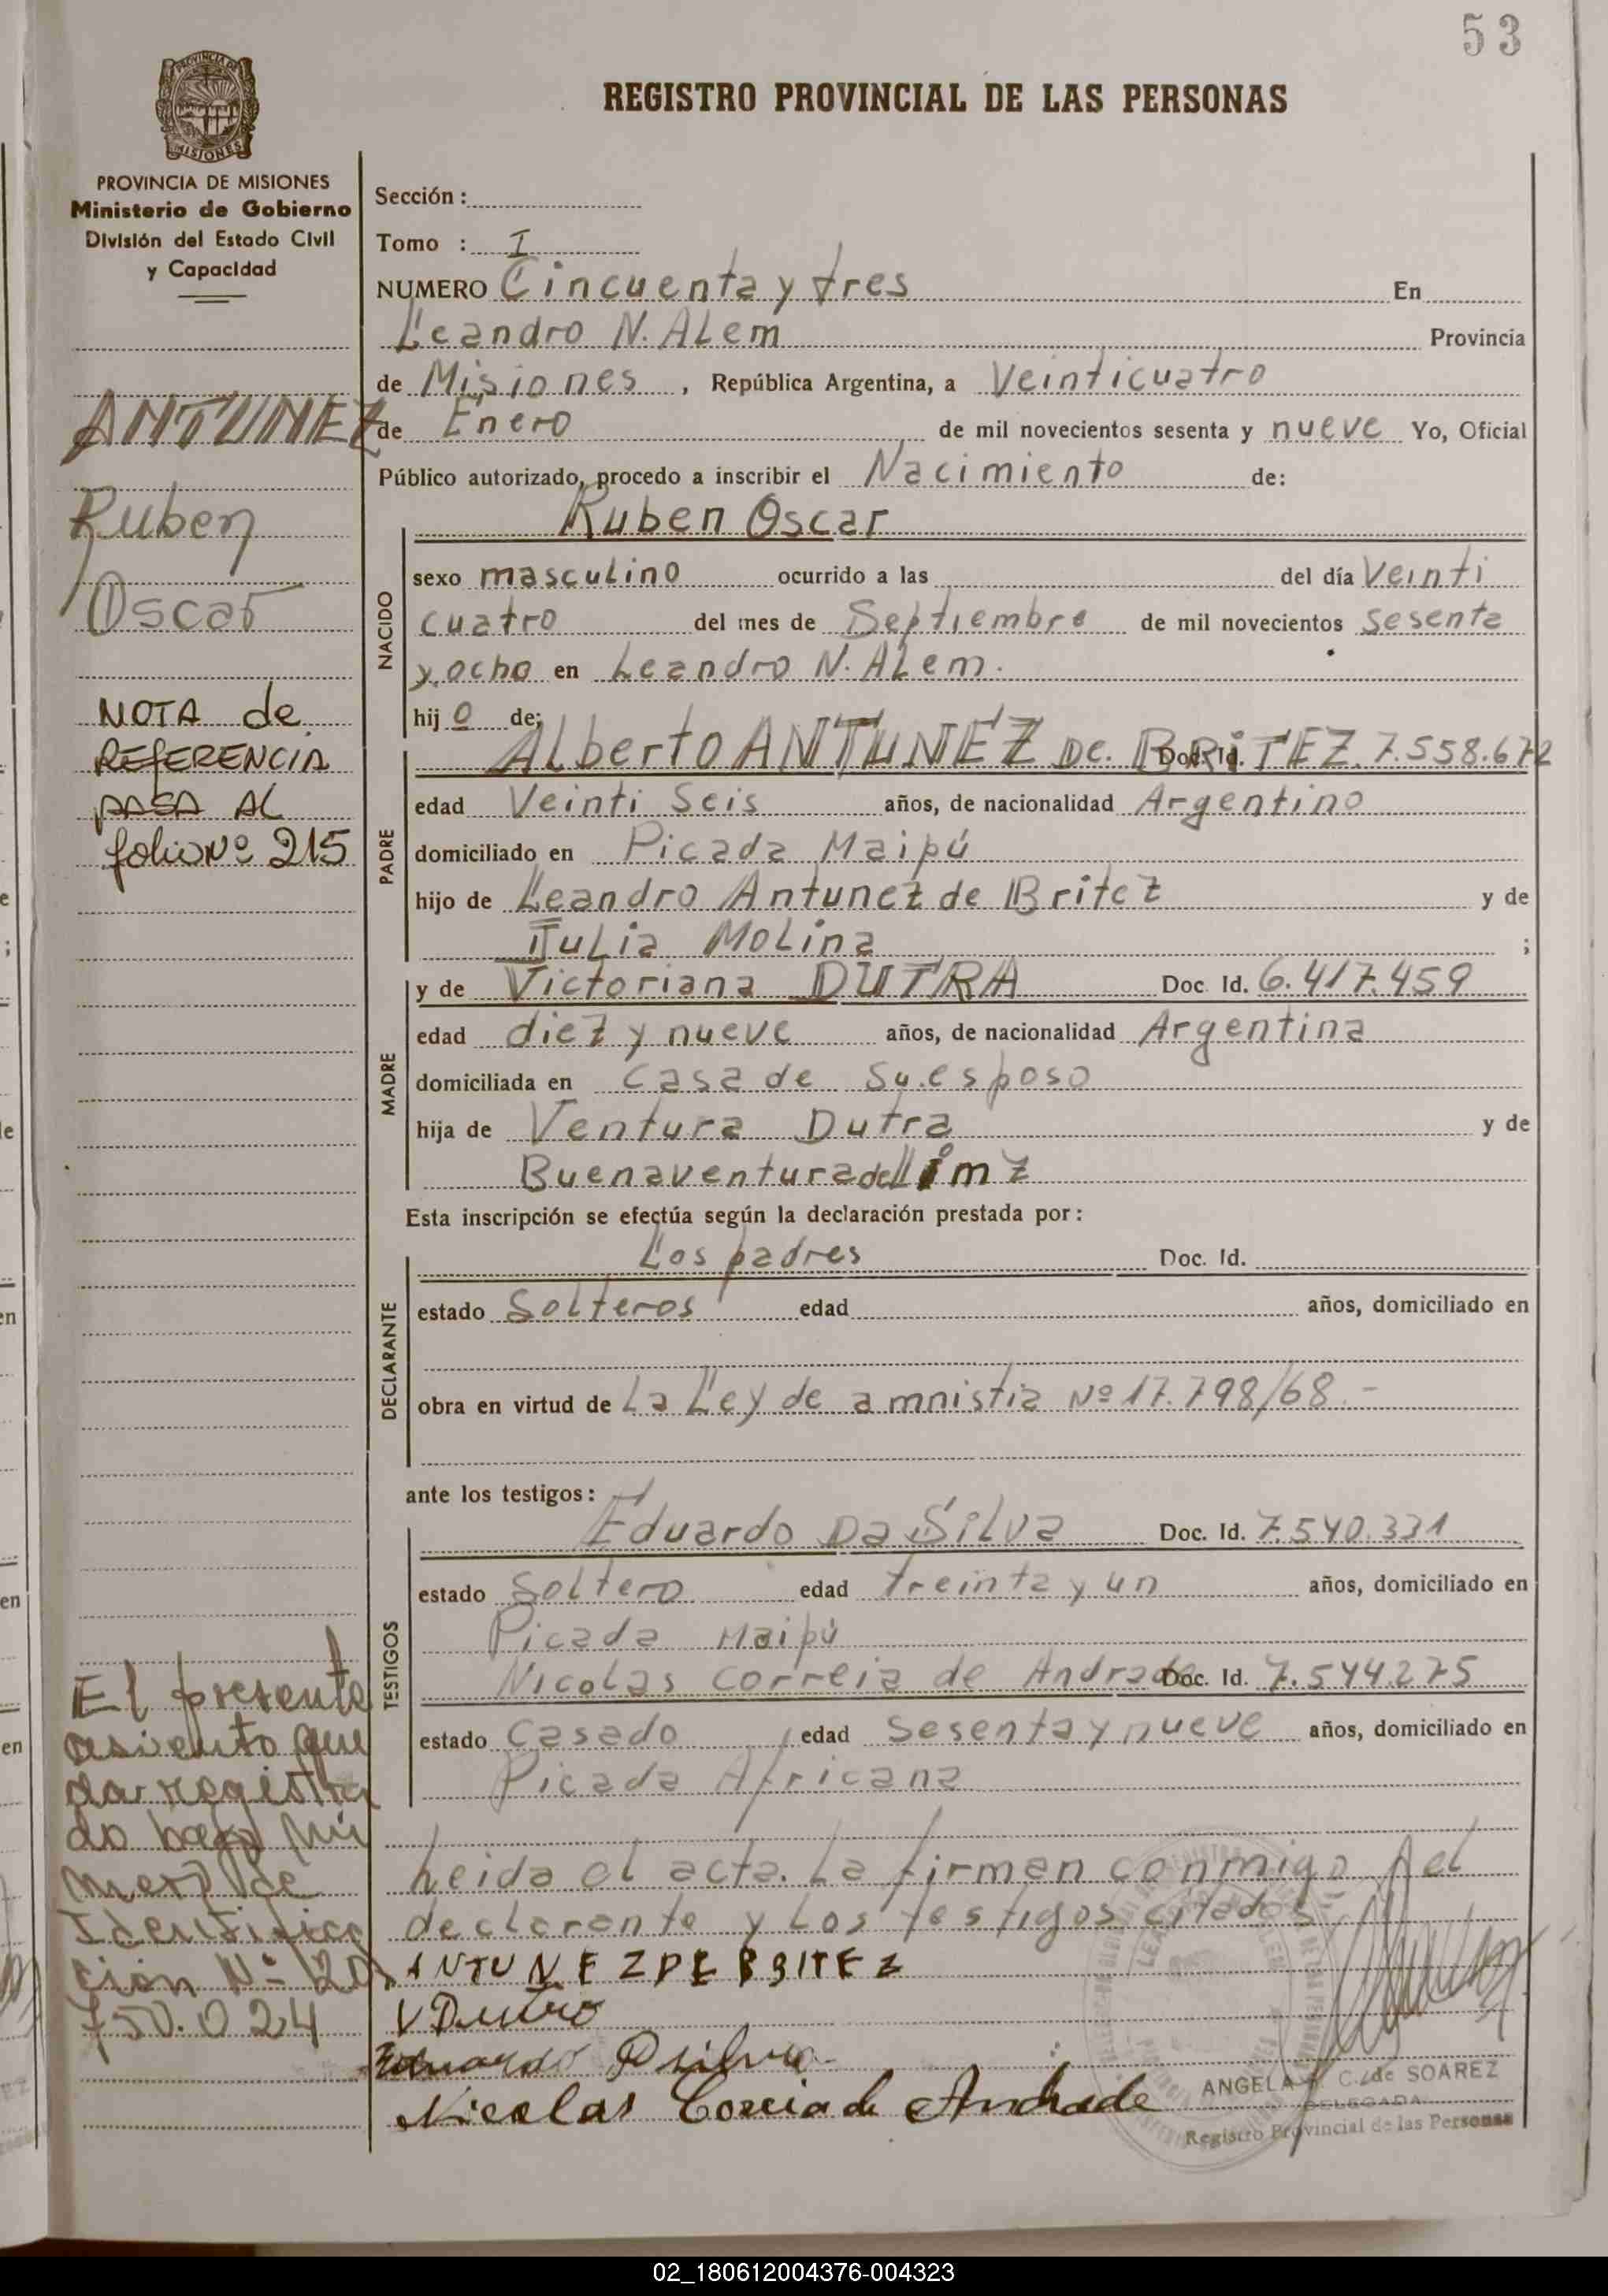 53
REGISTRO PROVINCIAL DE LAS PERSONAS
PROVINCIA DE MISIONES
Ministerio de Gobierno
División del Estado Civil
y Capacidad
ANTUNEZ
Ruben
Oscar
NOTA de
REFERENCIA
PASA AL
folio Nº 215
El presente
asiento que
da registra
do bajo Nú
mero de
Identifica
ción Nº 20
750.024
Sección :
Tomo : I
NUMERO Cincuenta y tres En
Leandro N. ALem Provincia
de Misiones , República Argentina, a Veinticuatro
de Enero de mil novecientos sesenta y nueve Yo, Oficial
Público autorizado, procedo a inscribir el Nacimiento de:
Ruben Oscar
NACIDO
sexo masculino ocurrido a las del día Veinti
cuatro del mes de Septiembre de mil novecientos sesenta
y ocho en Leandro N. ALem.
hij o de:
PADRE
Alberto ANTUNEZ De. BRITEZ. Doc. Id. 7.558.672
edad Veinti Seis años, de nacionalidad Argentino
domiciliado en Picada Maipú
hijo de Leandro Antunez de Britez y de
Julia Molina ;
MADRE
y de Victoriana DUTRA Doc. Id. 6.417.459
edad diez y nueve años, de nacionalidad Argentina
domiciliada en casa de su esposo
hija de Ventura Dutra y de
Buenaventura de
Esta inscripción se efectúa según la declaración prestada por :
DECLARANTE
Los padres Doc. Id.
estado Solteros edad años, domiciliado en
obra en virtud de La Ley de amnistia Nº 17.798/68.-
ante los testigos :
TESTIGOS
Eduardo Da Silva Doc. Id. 7.540.331
estado Soltero edad treinta y un años, domiciliado en
Picada Maipú
Nicolas Correia de Andrade Doc. Id. 7.544.275
estado Casado edad Sesenta y nueve años, domiciliado en
Picada Africana
Leida el acta. La firman conmigo el
declarante y Los testigos citados
ANTUNEZ DE BRITEZ
V Dutra
Eduardo Dsilva
Nicolas Correia de Andrade
ANGELA C. de SOAREZ
DELEGADA
Registro Provincial de las Personas
02_180612004376-004323